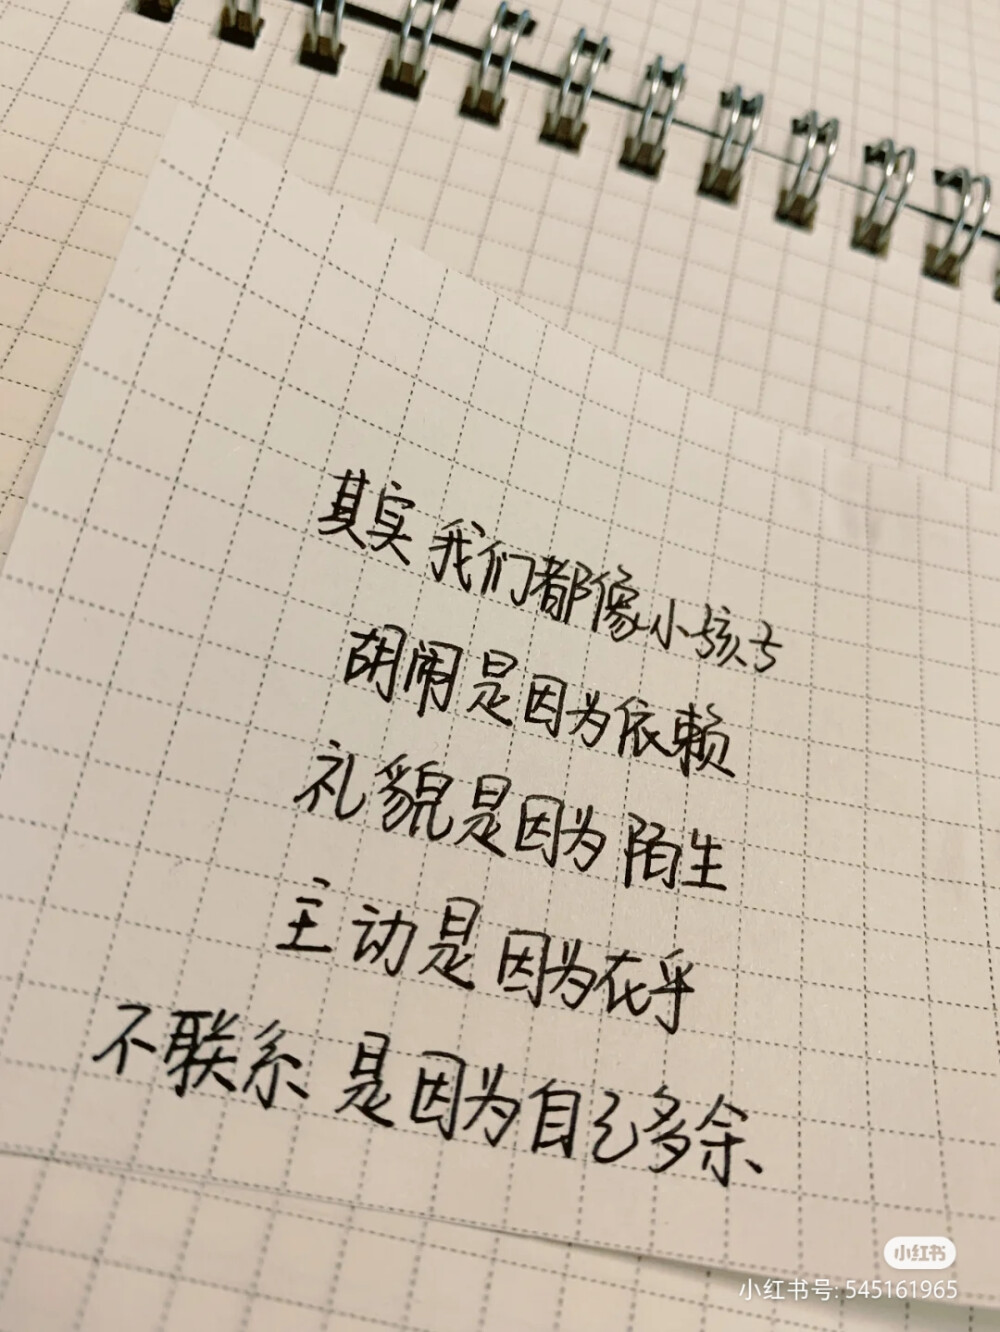 其实我们都像小孩子
胡闹是因为依赖
礼貌是因为陌生
主动是因为在乎
不联系是因为自己多余、
小红书
小红书号: 545161965